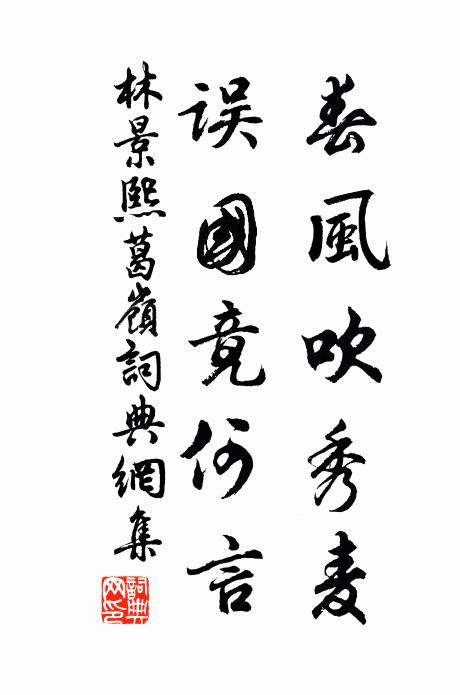 春風吹秀麦
误國竟何言
林景熙葛嶺詞典網集
詞典
网印